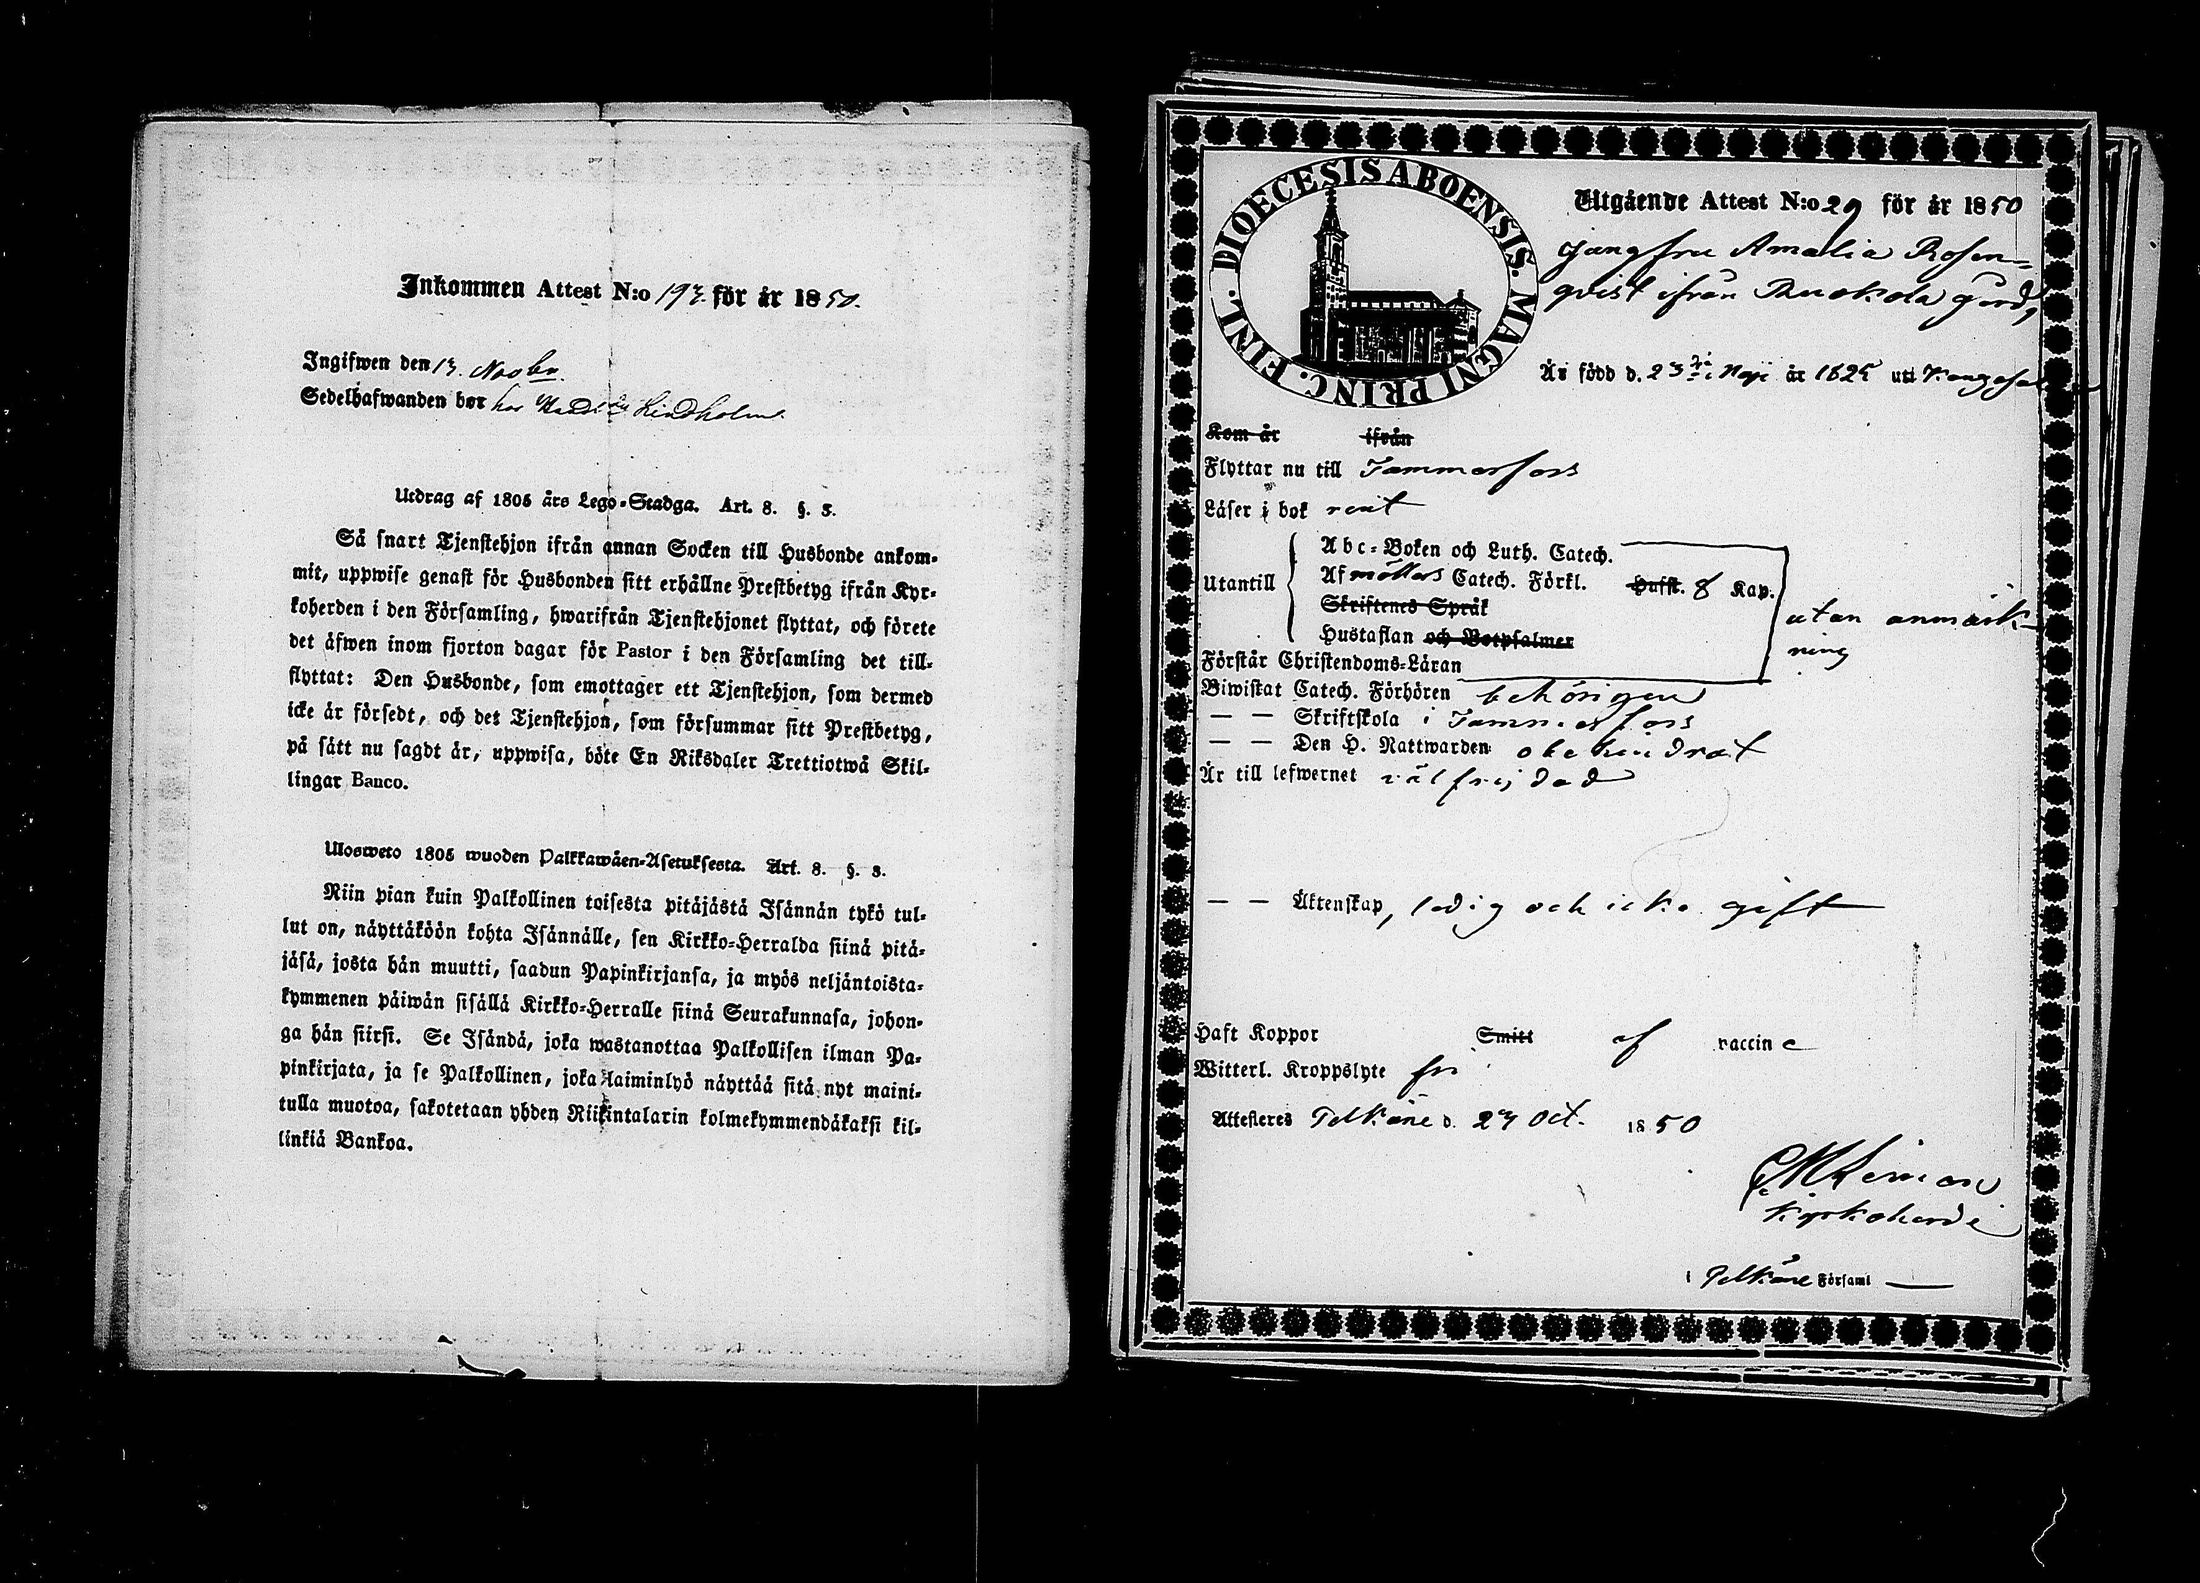 Inkommen Attest N:o 193. för år 1850.
Ingifwen den 13. Novbr.
Sedelhafwanden bor hos Lindholm.
Utdrag af 1805 års Lego-Stadga. Art. 8. §. 3.
Så snart Tjenstehjon ifrån annan Socken till Husbonde ankom-
mit, uppwise genast för Husbonden sitt erhållne Prestbetyg ifrån Kyr-
koherden i den Församling, hwarifrån Tjenstehjonet flyttat, och förete
det äfwen inom fjorton dagar för Pastor i den Församling det till-
flyttat: Den Husbonde, som emottager ett Tjenstehjon, som dermed
icke är försedt, och det Tjenstehjon, som försummar sitt Prestbetyg,
på sätt nu sagdt är, uppwisa, böte En Riksdaler Trettiotwå Skil-
lingar Banco.
Ulosweto 1805 wuoden Palkkawäen-Asetuksesta. Art. 8. §. 3.
Niin pian kuin Palkollinen toisesta pitäjästä Isännän tykö tul-
lut on, näyttäköön kohta Isännälle, sen Kirkko-Herralda siinä pitä-
jäsä, josta hän muutti, saadun Papinkirjansa, ja myös neljäntoista-
kymmenen päiwän sisällä Kirkko-Herralle siinä Seurakunnasa, johon-
ga hän siirsi. Se Isändä, joka wastanottaa Palkollisen ilman Pa-
pinkirjata, ja se Palkollinen, joka laiminlyö näyttää sitä nyt maini-
tulla muotoa, sakotetaan yhden Riikintalarin kolmekymmendäkaksi kil-
linkiä Bankoa.
DIOECESIS ABOENSIS. MAGNI PRINC. FINL.
Utgående Attest N:o 29 för år 1850
Jungfru Amalia Rosen-
qvist ifrån Ruokola gård,
Är född d. 23 Maji år 1825 uti Kangasala
Kom år ifrån
Flyttar nu till Tammerfors
Läser i bok rent
Utantill
Abc-Boken och Luth. Catech.
Af Möllers Catech. Förkl. Hufst. 8 Kap.
Skriftenes Språk
Hustaflan och Botpsalmer
Förstår Christendoms-Läran
utan anmärk-
ning
Biwistat Catech. Förhören behörigen
— — Skriftskola i Tammerfors
— — Den H. Nattwarden obehindrat
Är till lefwernet välfrejdad
— — Äktenskap, ledig och icke gift
Haft Koppor Smitt af vaccine
Witterl. Kroppslyte fri
Attesteres Pelkäne d. 27 Oct. 1850
Kyrkoherde
i Pelkäne Församl